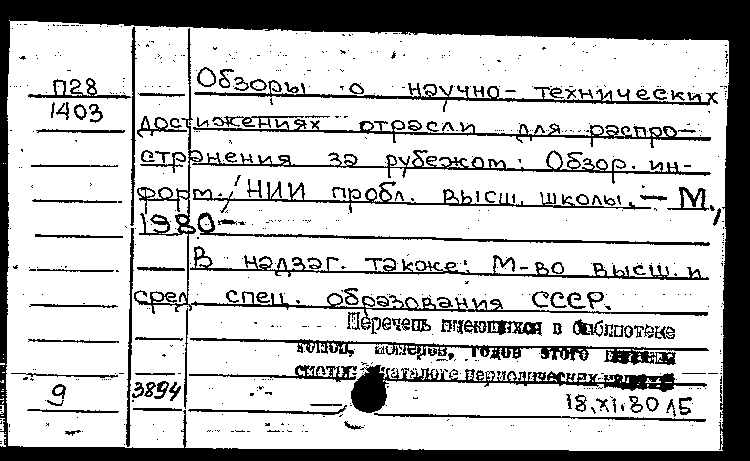 П28
1403
Обзоры о научно-технических
достижениях отрасли для распро-
странения за рубежом: Обзор. ин-
форм. / НИИ пробл. высш. школы. — М.,
1980—
В надзаг. также: М-во высш. и
сред. спец. образования СССР.
Перечень имеющихся в библиотеке
томов, номеров, годов этого
смотри каталоге периодических
9
3894
18.XI.80 ЛБ